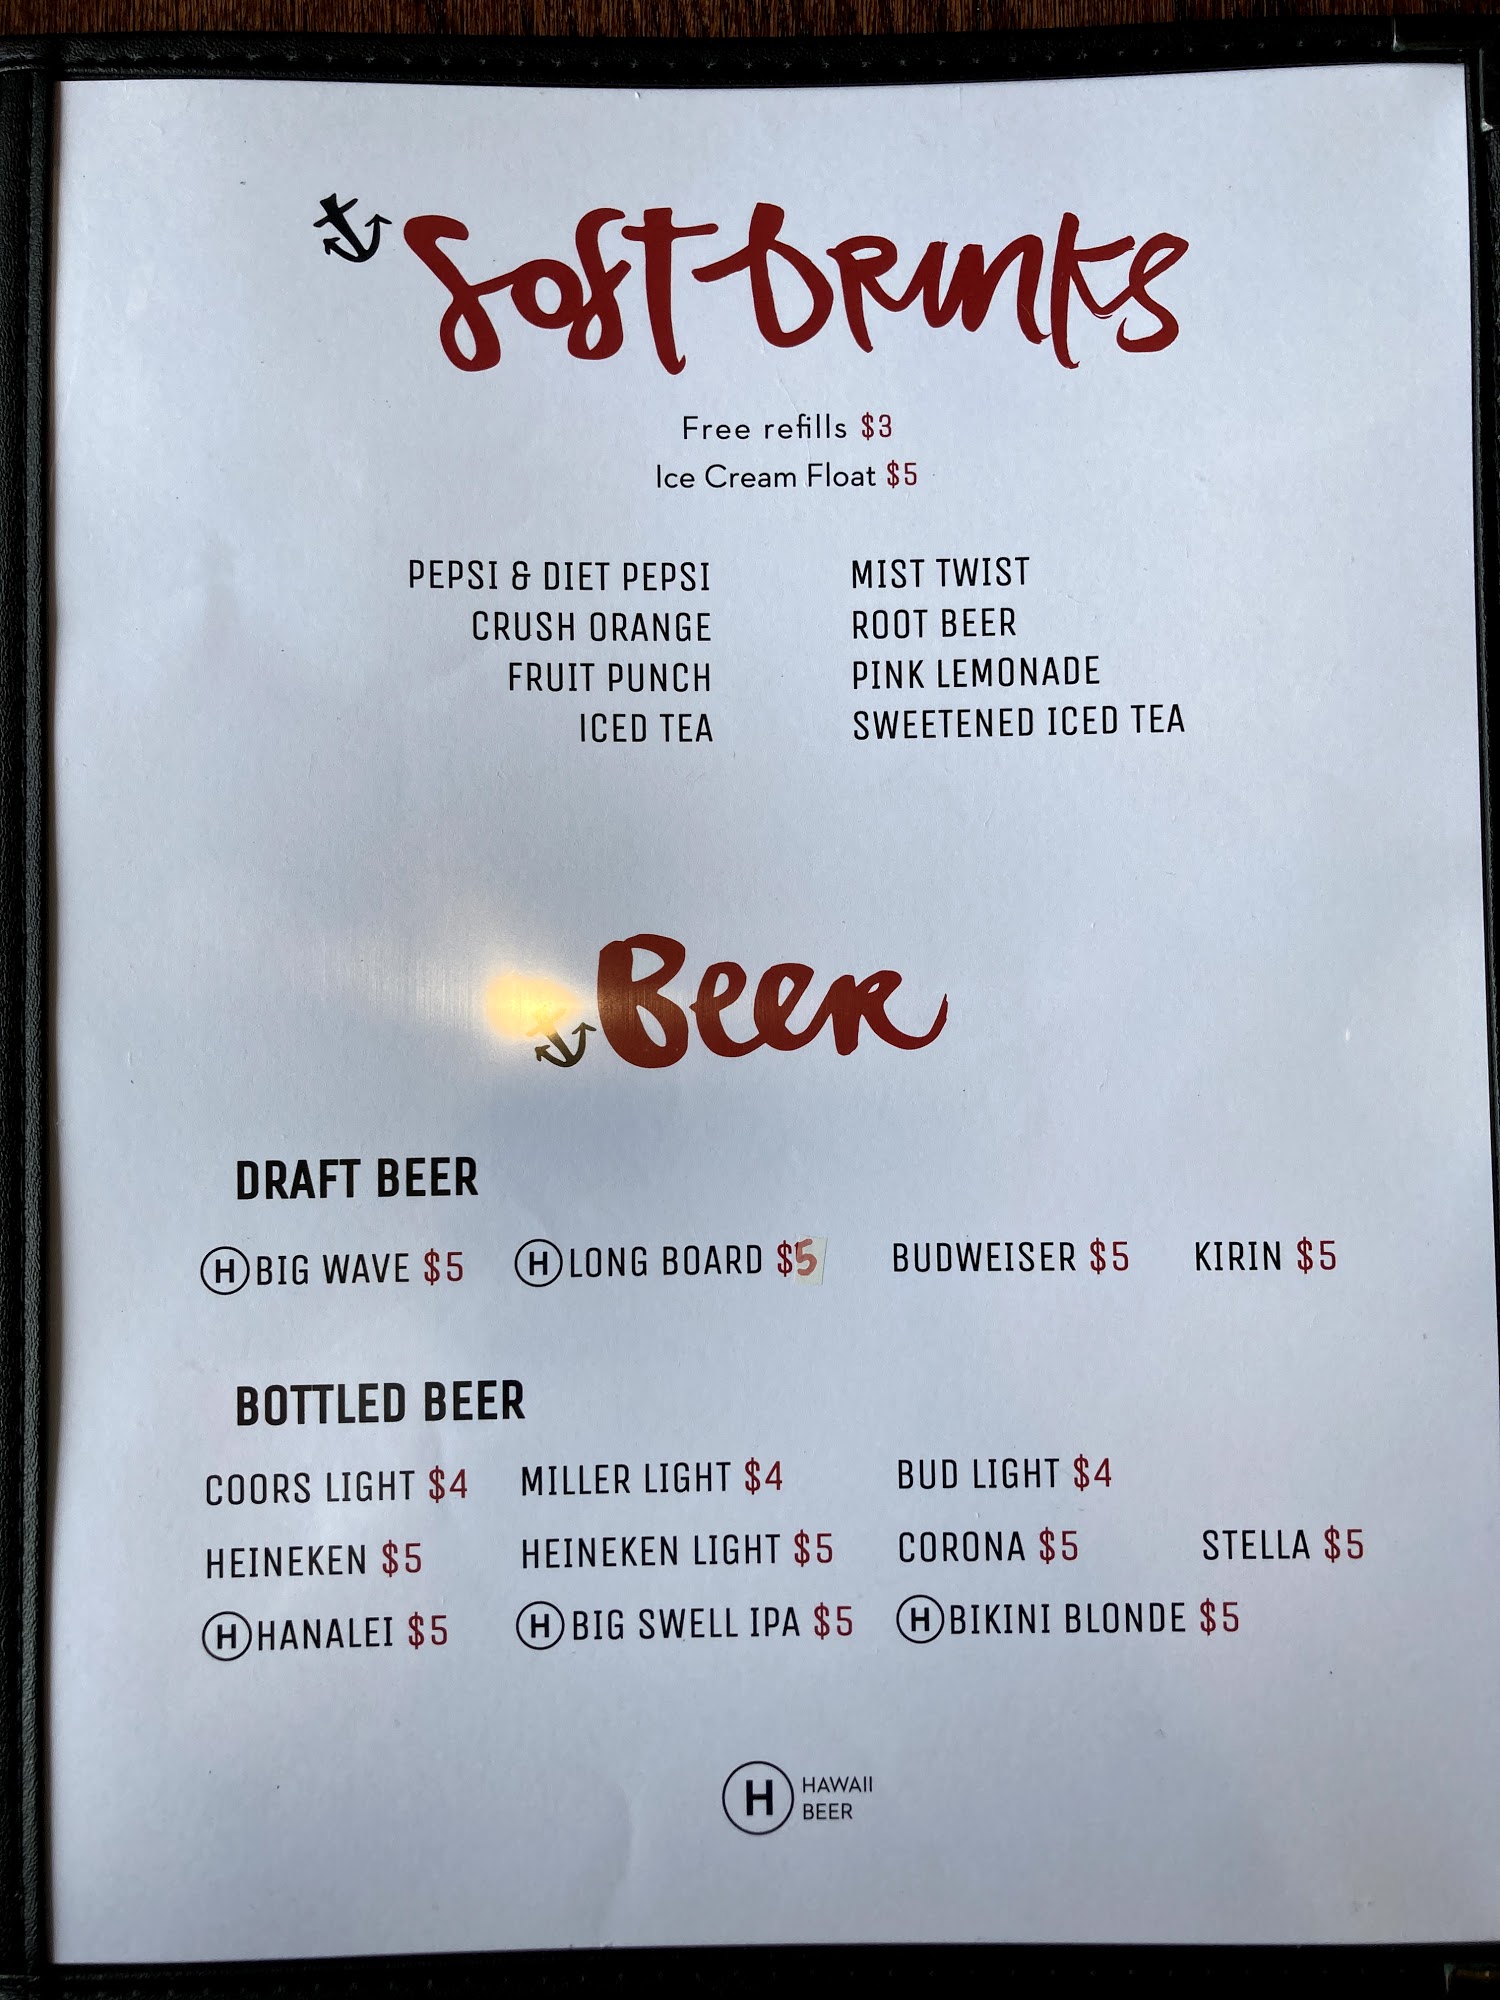 Soft Drinks
Free refills $3
Ice Cream Float $5
PEPSI & DIET PEPSI
CRUSH ORANGE
FRUIT PUNCH
ICED TEA
MIST TWIST
ROOT BEER
PINK LEMONADE
SWEETENED ICED TEA
Beer
DRAFT BEER
H BIG WAVE $5 H LONG BOARD $5 BUDWEISER $5 KIRIN $5
BOTTLED BEER
COORS LIGHT $4 MILLER LIGHT $4 BUD LIGHT $4
HEINEKEN $5 HEINEKEN LIGHT $5 CORONA $5 STELLA $5
H HANALEI $5 H BIG SWELL IPA $5 H BIKINI BLONDE $5
H HAWAII
BEER